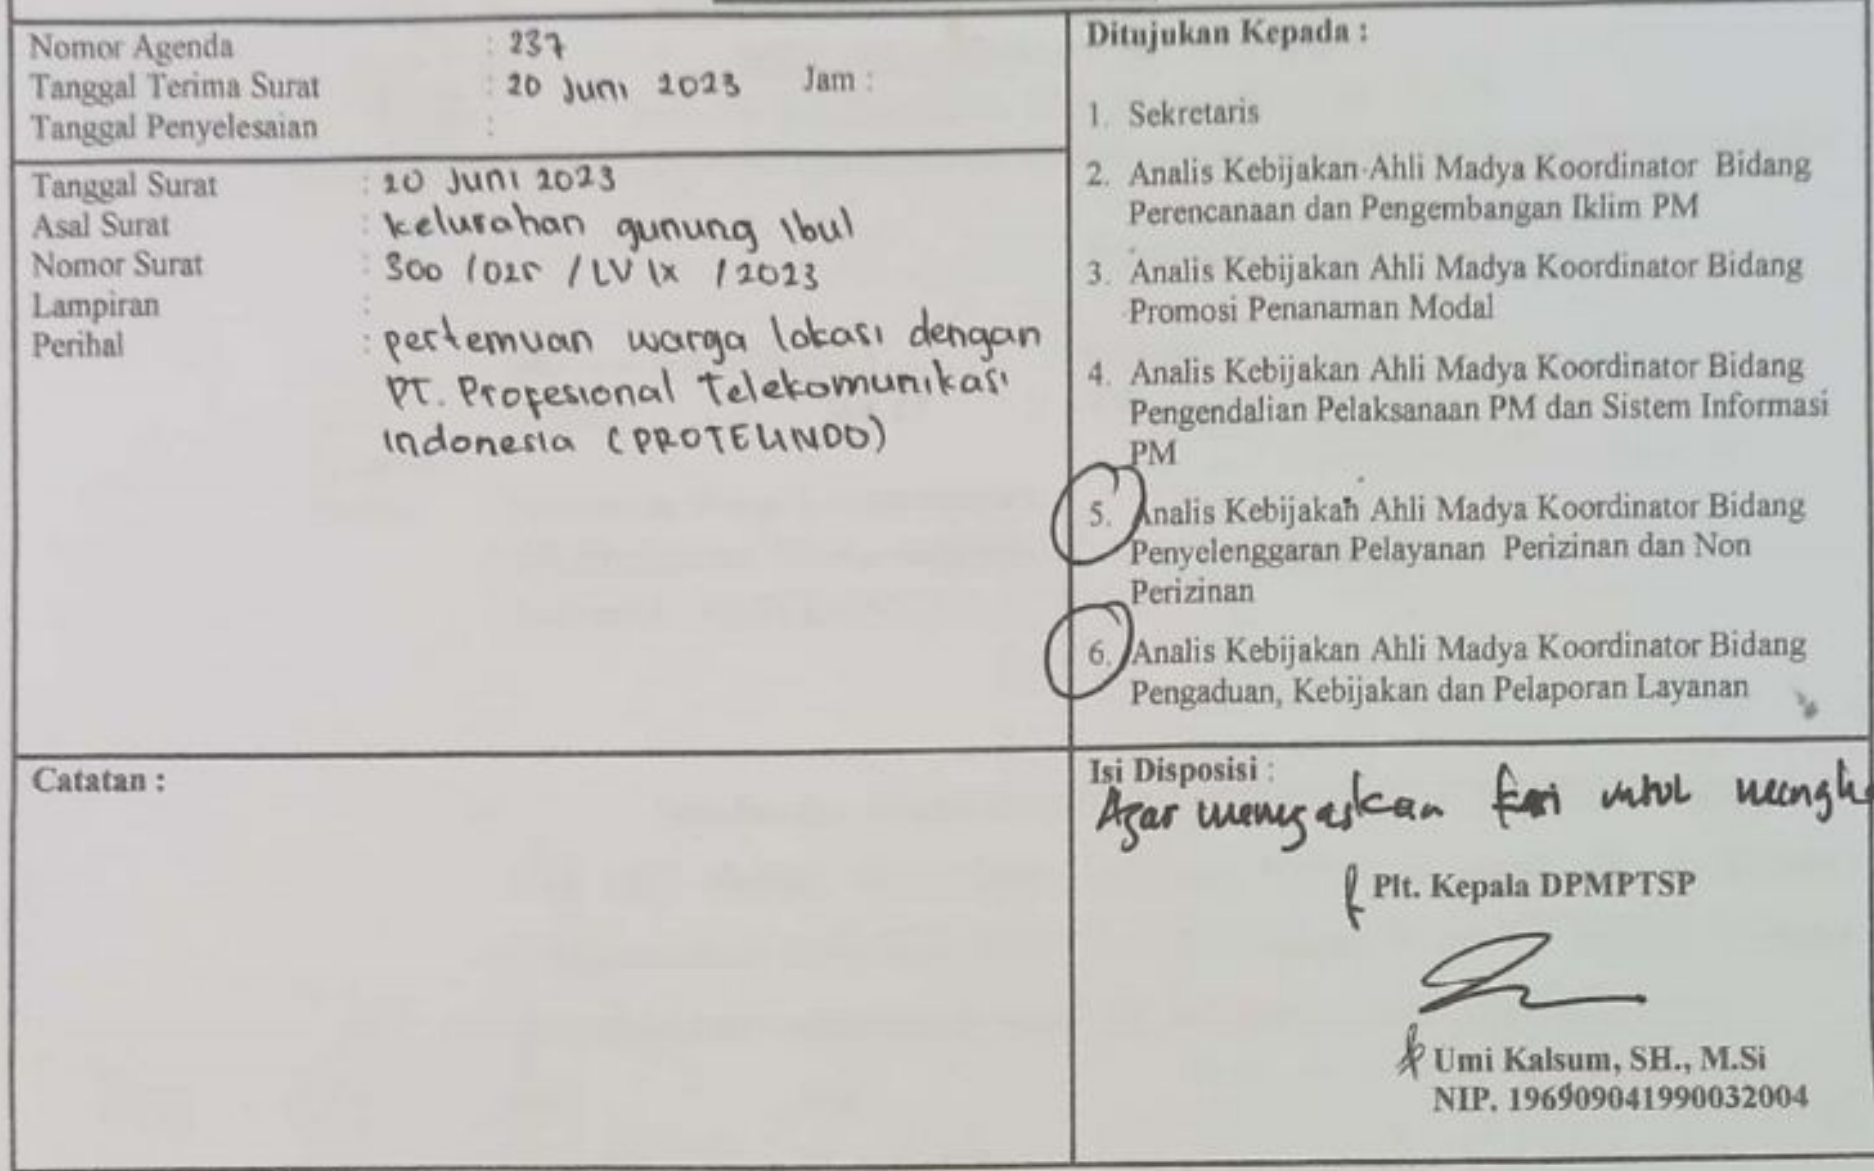 Nomor Agenda : 237
Tanggal Terima Surat : 20 Juni 2023 Jam :
Tanggal Penyelesaian :
Tanggal Surat : 20 Juni 2023
Asal Surat : kelurahan gunung Ibul
Nomor Surat : 300 /025 / LV IX / 2023
Lampiran :
Perihal : pertemuan warga lokasi dengan
PT. Propesional Telekomunikasi
Indonesia (PROTELINDO)
Ditujukan Kepada :
1. Sekretaris
2. Analis Kebijakan Ahli Madya Koordinator Bidang
Perencanaan dan Pengembangan Iklim PM
3. Analis Kebijakan Ahli Madya Koordinator Bidang
Promosi Penanaman Modal
4. Analis Kebijakan Ahli Madya Koordinator Bidang
Pengendalian Pelaksanaan PM dan Sistem Informasi
PM
5. Analis Kebijakan Ahli Madya Koordinator Bidang
Penyelenggaran Pelayanan Perizinan dan Non
Perizinan
6. Analis Kebijakan Ahli Madya Koordinator Bidang
Pengaduan, Kebijakan dan Pelaporan Layanan
Catatan :
Isi Disposisi :
Agar menugaskan untuk
Plt. Kepala DPMPTSP
Umi Kalsum, SH., M.Si
NIP. 196909041990032004